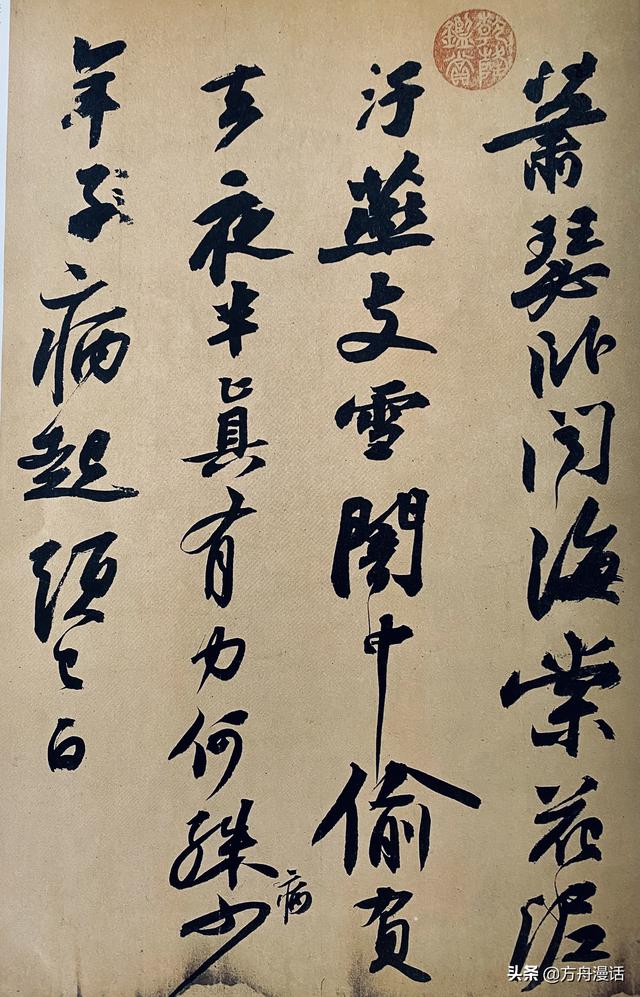 蕭瑟卧聞海棠花泥
汙燕支雪闇中偷負
去夜半真有力何殊少
病
年子病起須已白
乾隆鑑賞
头条 @方舟漫话